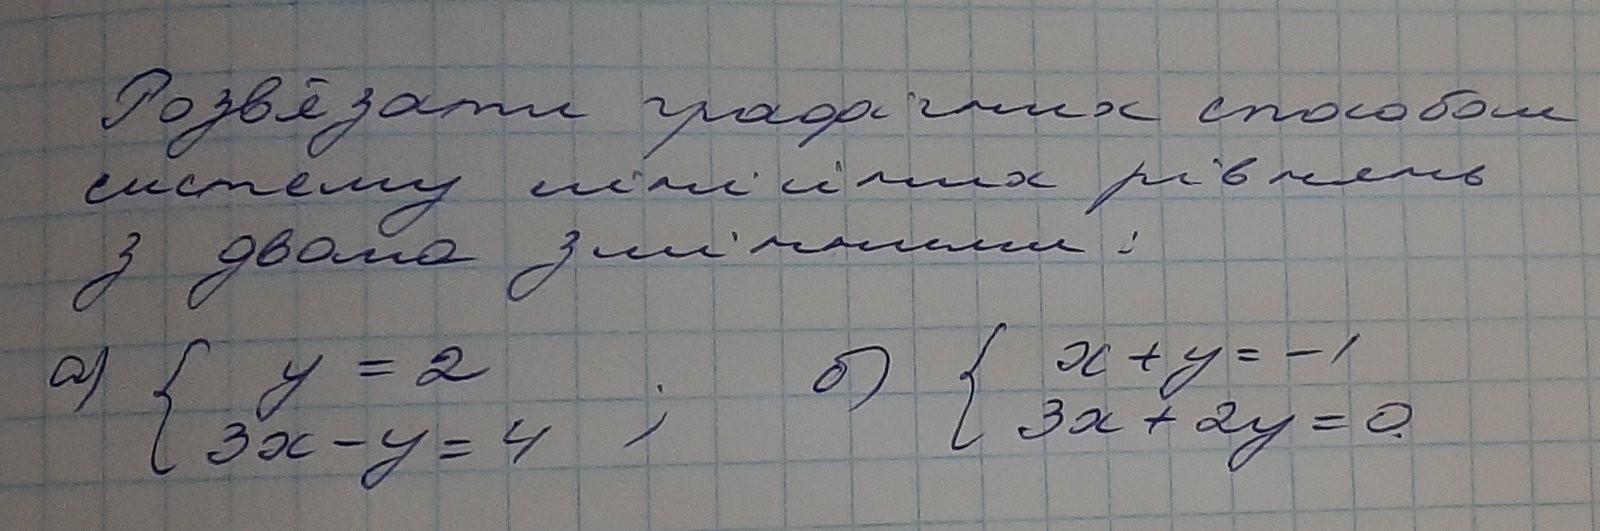 Розв'язати графічних способом
систему лінійних рівнянь
з двома змінними:
а) { y = 2 ; б) { x + y = -1
3x - y = 4 3x + 2y = 0.